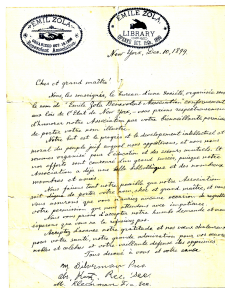 EMILE ZOLA
EMILE ZOLA
LIBRARY
New York, Dec. 10, 1899.
Cher et grand maître!
Nous, les soussignés, le bureau d'une Société, organisée sous
le nom de "Emile Zola Benevolent Association" conformément
aux lois de l'Etat de New York, vous prions respectueusement
d'honorer notre Association par votre bienveillante permission
de porter votre nom illustre.
Notre but est le progrès et le développement intellectuel et
moral du peuple juif auquel nous appartenons, et nous nous
sommes organisés pour l'éducation et des secours mutuels. Et
nos efforts sont couronnés d'un grand succès, puisque notre
Association a déjà une belle bibliothèque et des nombreux
membres et amis.
Nous faisons tout notre possible que notre Association
soit digne de porter votre nom, cher et grand maître, et nous
vous assurons que vous n'aurez aucune occasion de regretter
votre permission que nous attendons avec impatience.
Nous vous prions d'accepter notre humble demande et nous
espérons que vous ne la refuserez pas.
Acceptez d'avance notre gratitude et nos vœux
pour votre santé, notre grande admiration pour vos œuvres
nobles et célèbres et votre vaillante défense des opprimés.
Tous dévoué à vous et votre cause.
M. Silverman Pres.
Rec. Sec.
M. Fin. Sec.